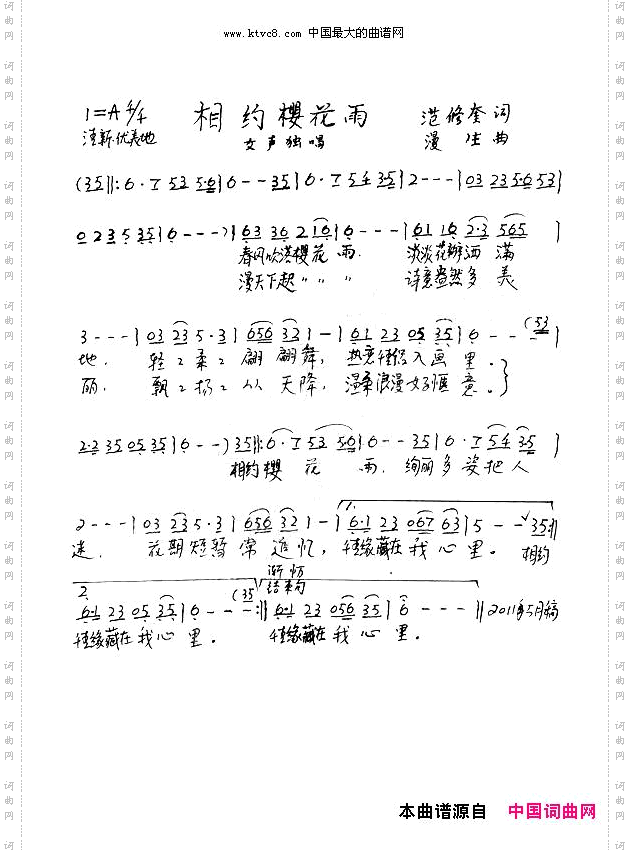 www.ktvc8.com 中国最大的曲谱网
1=A 4/4 相约樱花雨 范修奎 词
清新.优美地 女声独唱 漫生 曲
(35‖:6·1 53 5·6|6--35|6·1 54 35|2---|03 23 5·6 53|
0235 35|6---)|63 36 216|6---|61 16 2·3 565|
春风吹落樱花雨. 淡淡花瓣洒满
漫天下起〃〃〃 诗意盎然多美
3---|03 23 5·3|656 32 1-|61 23 05 35|6--(53|
地. 轻々柔々翩翩舞, 入画里.
丽. 飘々扬々从天降, 温柔浪漫好惬意.
2·2 35 05 35|6--)35‖:6·1 53 56|6--35|6·1 54 35|
相约樱花雨. 绚丽多姿把人
2---|03 23 5·3|656 32 1-|1. 6·1 23 067 63|5--35:‖
迷. 花期短暂常追忆, 情缘藏在我心里. 相约
渐慢
2. (35 结束句
6·1 23 05 35|6---:‖6·1 23 056 35|6---‖2011年3月稿
情缘藏在我心里. 情缘藏在我心里.
本曲谱源自 中国词曲网
词曲网